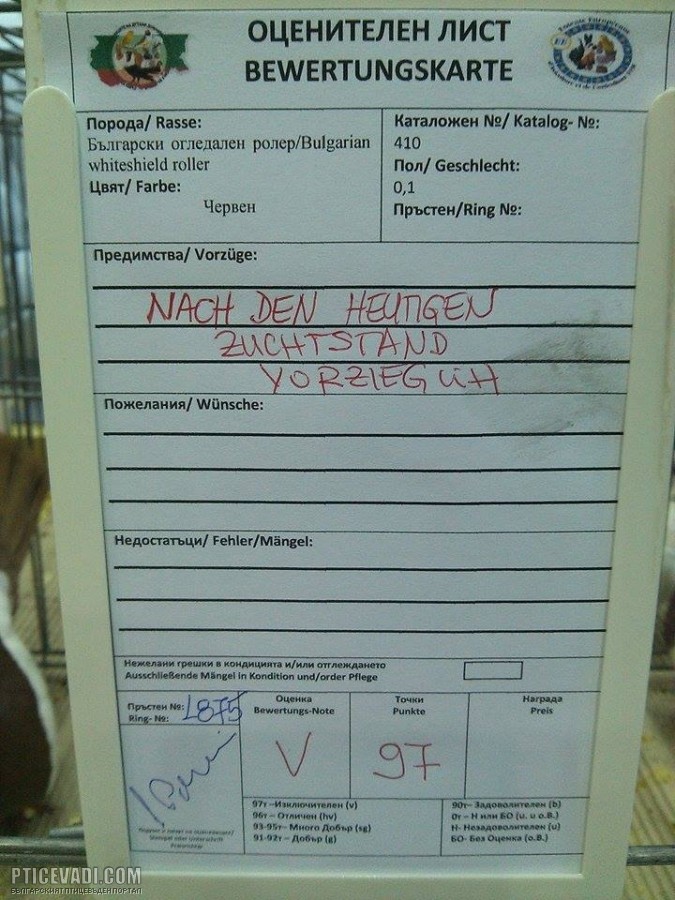 ОЦЕНИТЕЛЕН ЛИСТ
BEWERTUNGSKARTE
Порода/ Rasse:
Български огледален ролер/Bulgarian
whiteshield roller
Цвят/ Farbe:
Червен
Каталожен №/ Katalog- №:
410
Пол/ Geschlecht:
0,1
Пръстен/Ring №:
Предимства/ Vorzüge:
NACH DEN HEUTIGEN
ZUCHTSTAND
VORZIEGÜH
Пожелания/ Wünsche:
Недостатъци/ Fehler/Mängel:
Нежелани грешки в кондицията и/или отглеждането
Ausschließende Mängel in Kondition und/order Pflege
Пръстен №:
Ring- №: L875
Оценка
Bewertungs-Note
V
Точки
Punkte
97
Награда
Preis
97т –Изключителен (v)
96т – Отличен (hv)
93-95т– Много Добър (sg)
91-92т – Добър (g)
90т– Задоволителен (b)
0т – Н или БО (u. u o.B.)
Н- Незадоволителен (u)
БО- Без Оценка (o.B.)
PTICEVADI.COM
БЪЛГАРСКИЯТ ПТИЦЕВЪДЕН ПОРТАЛ